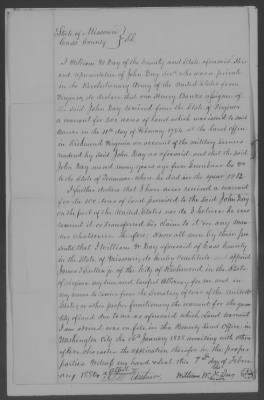 State of Missouri }
Cass County } SS
I William W Day of the County and State aforesaid Heir
and representative of John Day decd who was a private
in the Revolutionary Army of the United States from
Virginia, do declare that one Henry Banks assignee of
the said John Day received from the State of Virginia
a warrant for 200 acres of land which was issued to said
Banks in the 11th day of February 1784 at the land office
in Richmond Virginia on account of the military services
rendered by said John Day as aforesaid and that the said
John Day moved many years ago from
to the State of Tennessee where he died in the year 1812
I further declare that I have never received a warrant
for the 100 Acres of Land promised to the Said John Day
on the part of the United States nor do I believe he ever
received it or transferred his claim to it in any man
ner whatsoever therefore. Know all men by these pre
sents that I William W Day aforesaid of Cass County
in the State of Missouri, do hereby Constitute and appoint
James of the City of Richmond in the State
of Virginia my true and lawful Attorney for me and in
my name to receive from the Secretary of War of the United
States or other proper functionary the warrant for the quan
tity of land due to me as aforesaid which Land warrant
I am assured was on file in the Bounty Land Office in
Washington City the 1838 awaiting with others
of like character the application therefor by the proper
parties Witness my hand and seal this 7th day of Febru
ary 1850
Attest
William W. Day